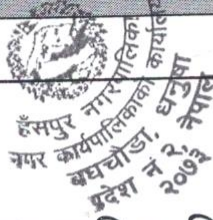 हंसपुर नगरपालिका
नगर कार्यपालिकाको कार्यालय
बघचौडा, धनुषा
प्रदेश नं २, नेपाल
२०७३